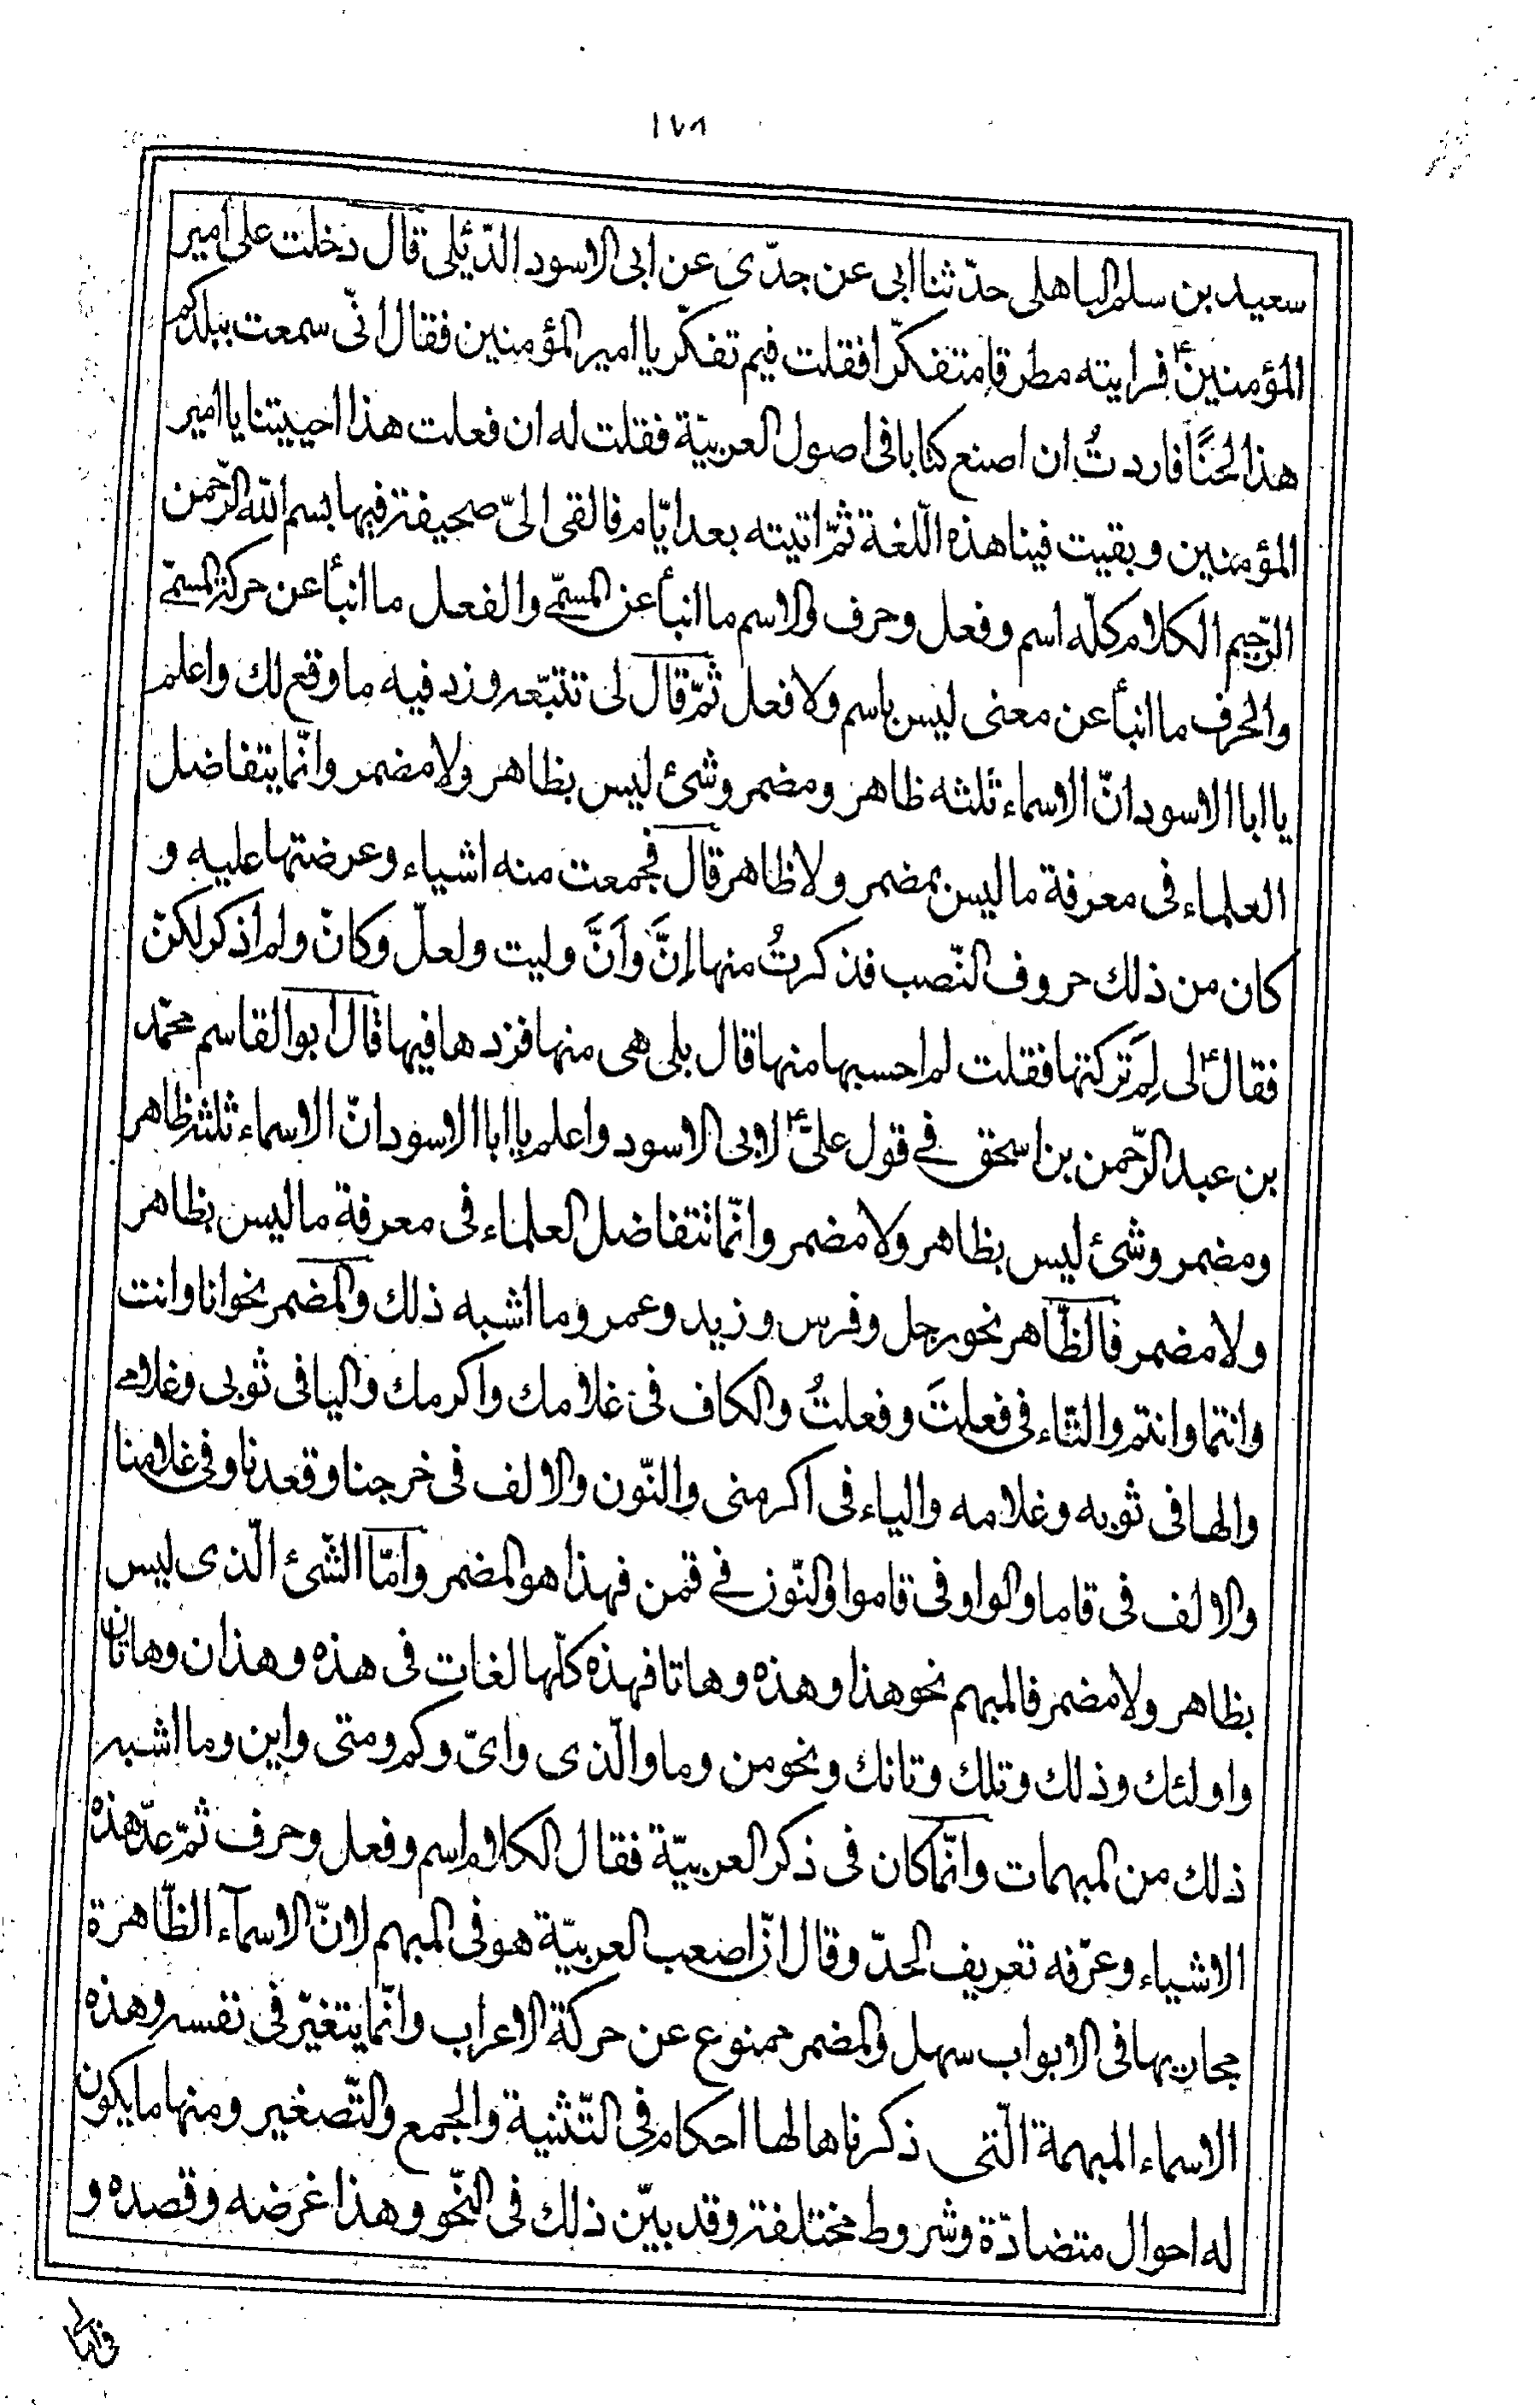 ١٧٨
سعيد بن سلم الباهلى حدّثنا ابى عن جدّى عن ابى الاسود الدّئلى قال دخلت على امير
المؤمنين ع فرايته مطرقا متفكّرا فقلت فيم تفكّر يا امير المؤمنين فقال انّى سمعت ببلدكم
هذا لحنًا فاردتُ ان اصنع كتابا فى اصول العربيّة فقلت له ان فعلت هذا احييتنا يا امير
المؤمنين وبقيت فينا هذه الّلغة ثمّ اتيته بعد ايّام فالقى الىّ صحيفة فيها بسم الله الرّحمن
الرّحيم الكلام كلّه اسم وفعل وحرف والاسم ما انبأ عن المسمّى والفعل ما انبأ عن حركة المسمّى
والحرف ما انبأ عن معنى ليس باسم ولا فعل ثمّ قال لى تتبّعه وزد فيه ما وقع لك واعلم
يا ابا الاسود انّ الاسماء ثلثه ظاهر ومضمر وشئ ليس بظاهر ولا مضمر وانّما يتفاضل
العلماء فى معرفة ما ليس بمضمر ولا ظاهر قال فجمعت منه اشياء وعرضتها عليه و
كان من ذلك حروف النّصب فذكرتُ منها إنَّ وَأَنَّ وليت ولعلّ وكانّ ولم اذكر لكنّ
فقال ع لى لِمَ تَركتها فقلت لم احسبها منها قال بلى هى منها فزدها فيها قال ابو القاسم محمّد
بن عبد الرّحمن بن اسحق فى قول علىّ ع لابى الاسود واعلم يا ابا الاسود انّ الاسماء ثلثة ظاهر
ومضمر وشئ ليس بظاهر ولا مضمر وانّما تتفاضل العلماء فى معرفة ما ليس بظاهر
ولا مضمر فالظّاهر نحو رجل وفرس وزيد وعمر وما اشبه ذلك والمضمر نحو انا وانت
وانتما وانتم والتّاء فى فعلتَ وفعلتُ والكاف فى غلامك واكرمك واليا فى ثوبى وغلامى
والها فى ثوبه وغلامه والياء فى اكرمنى والنّون والالف فى خرجنا وقعدنا وفى غلامنا
والالف فى قاما والواو فى قاموا والنّون فى قمن فهذا هو المضمر وامّا الشّئ الّذى ليس
بظاهر ولا مضمر فالمبهم نحو هذا وهذه وهاتا فهذه كلّها لغات فى هذه وهذان وهاتان
واولئك وذلك وتلك وتانك ونحو من وما والّذى واىّ وكم ومتى واين وما اشبه
ذلك من المبهمات وانّما كان فى ذكر العربيّة فقال الكلام اسم وفعل وحرف ثمّ عدّ هذه
الاشياء وعرّفه تعريف الحدّ وقال انّ اصعب العربيّة هو فى المبهم لانّ الاسمآء الظّاهرة
مجاريها فى الابواب سهل والمضمر ممنوع عن حركة الاعراب وانّما يتغيّر فى نفسه وهذه
الاسماء المبهمة الّتى ذكرناها لها احكام فى التّثنية والجمع والتّصغير ومنها ما يكون
له احوال متضادّة وشروط مختلفة وقد بيّن ذلك فى النّحو وهذا غرضه وقصده و